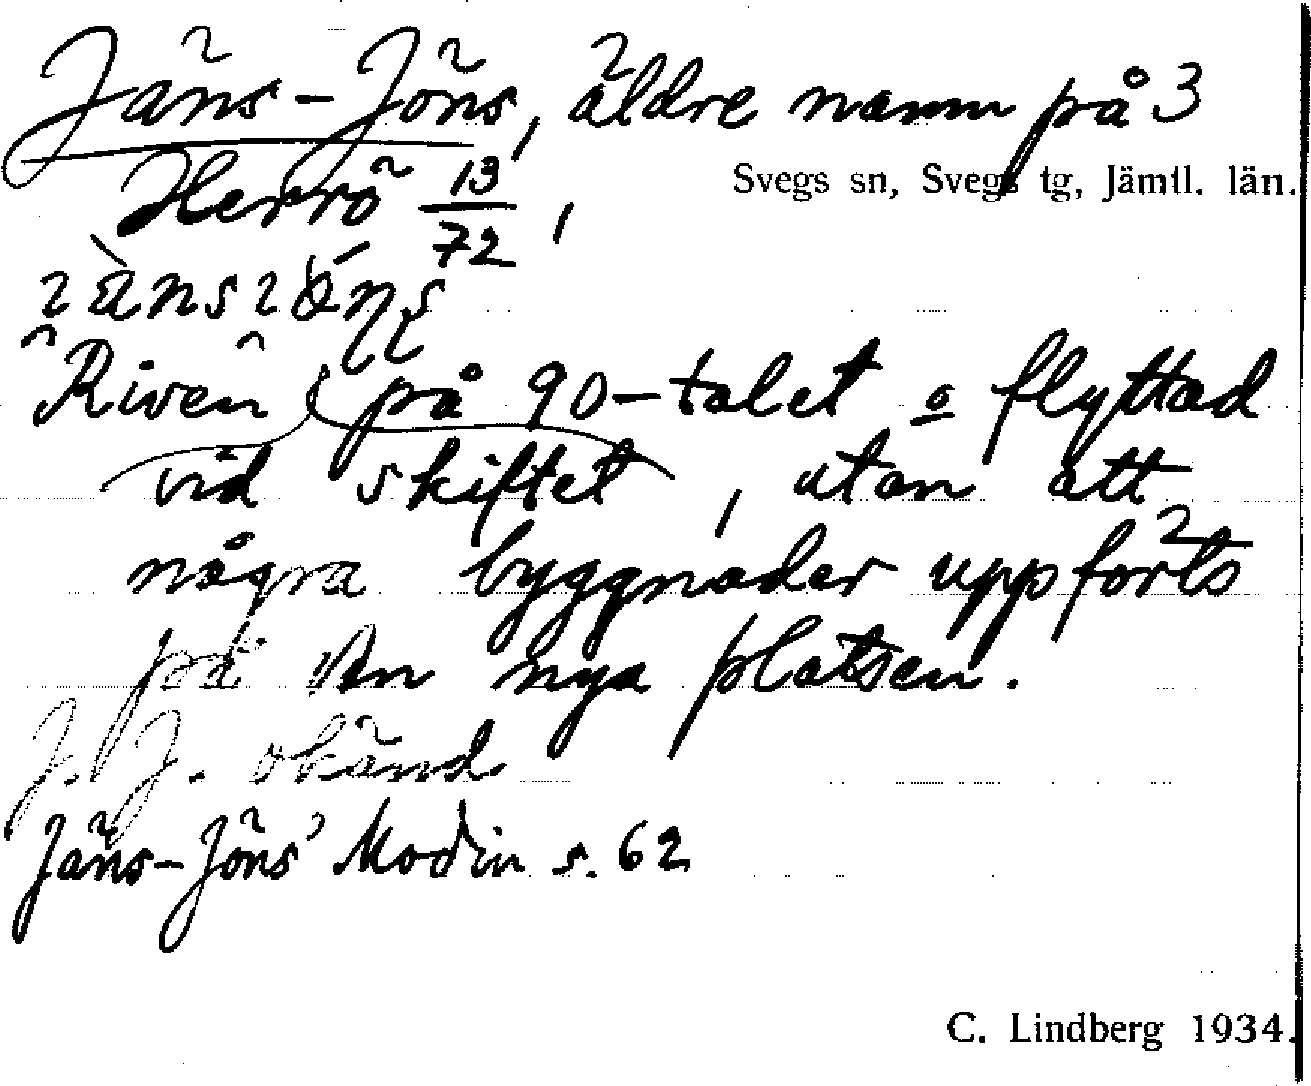 Jäns-Jöns, äldre namn på 3
Svegs sn, Svegs tg, Jämtl. län.
Herrö 13/72,
Riven på 90-talet o flyttad
vid skiftet, utan att
några byggnader uppförts
på den nya platsen.
J. J. okänd
Jäns-Jöns' Modin s. 62
C. Lindberg 1934.